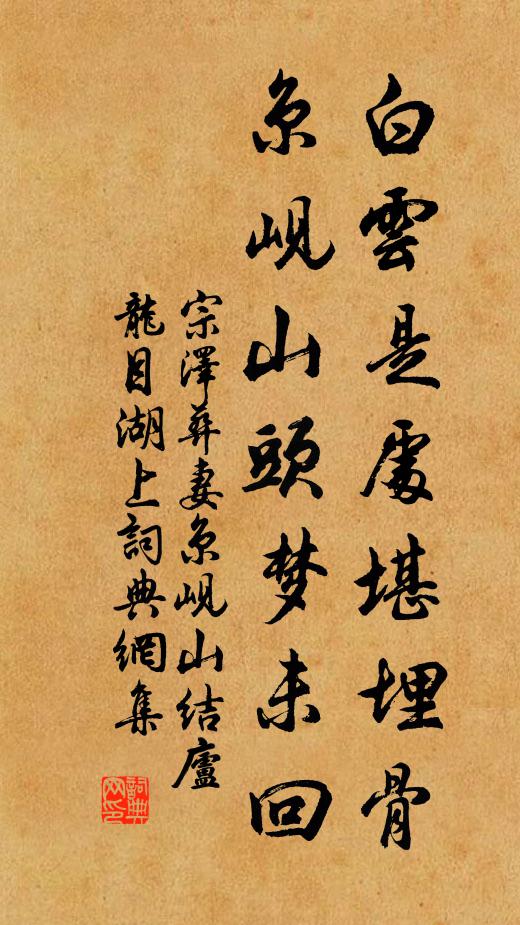 白雲是處堪埋骨
京峴山頭梦未回
宗澤葬妻京峴山结廬
龍目湖上詞典網集
詞典
网印